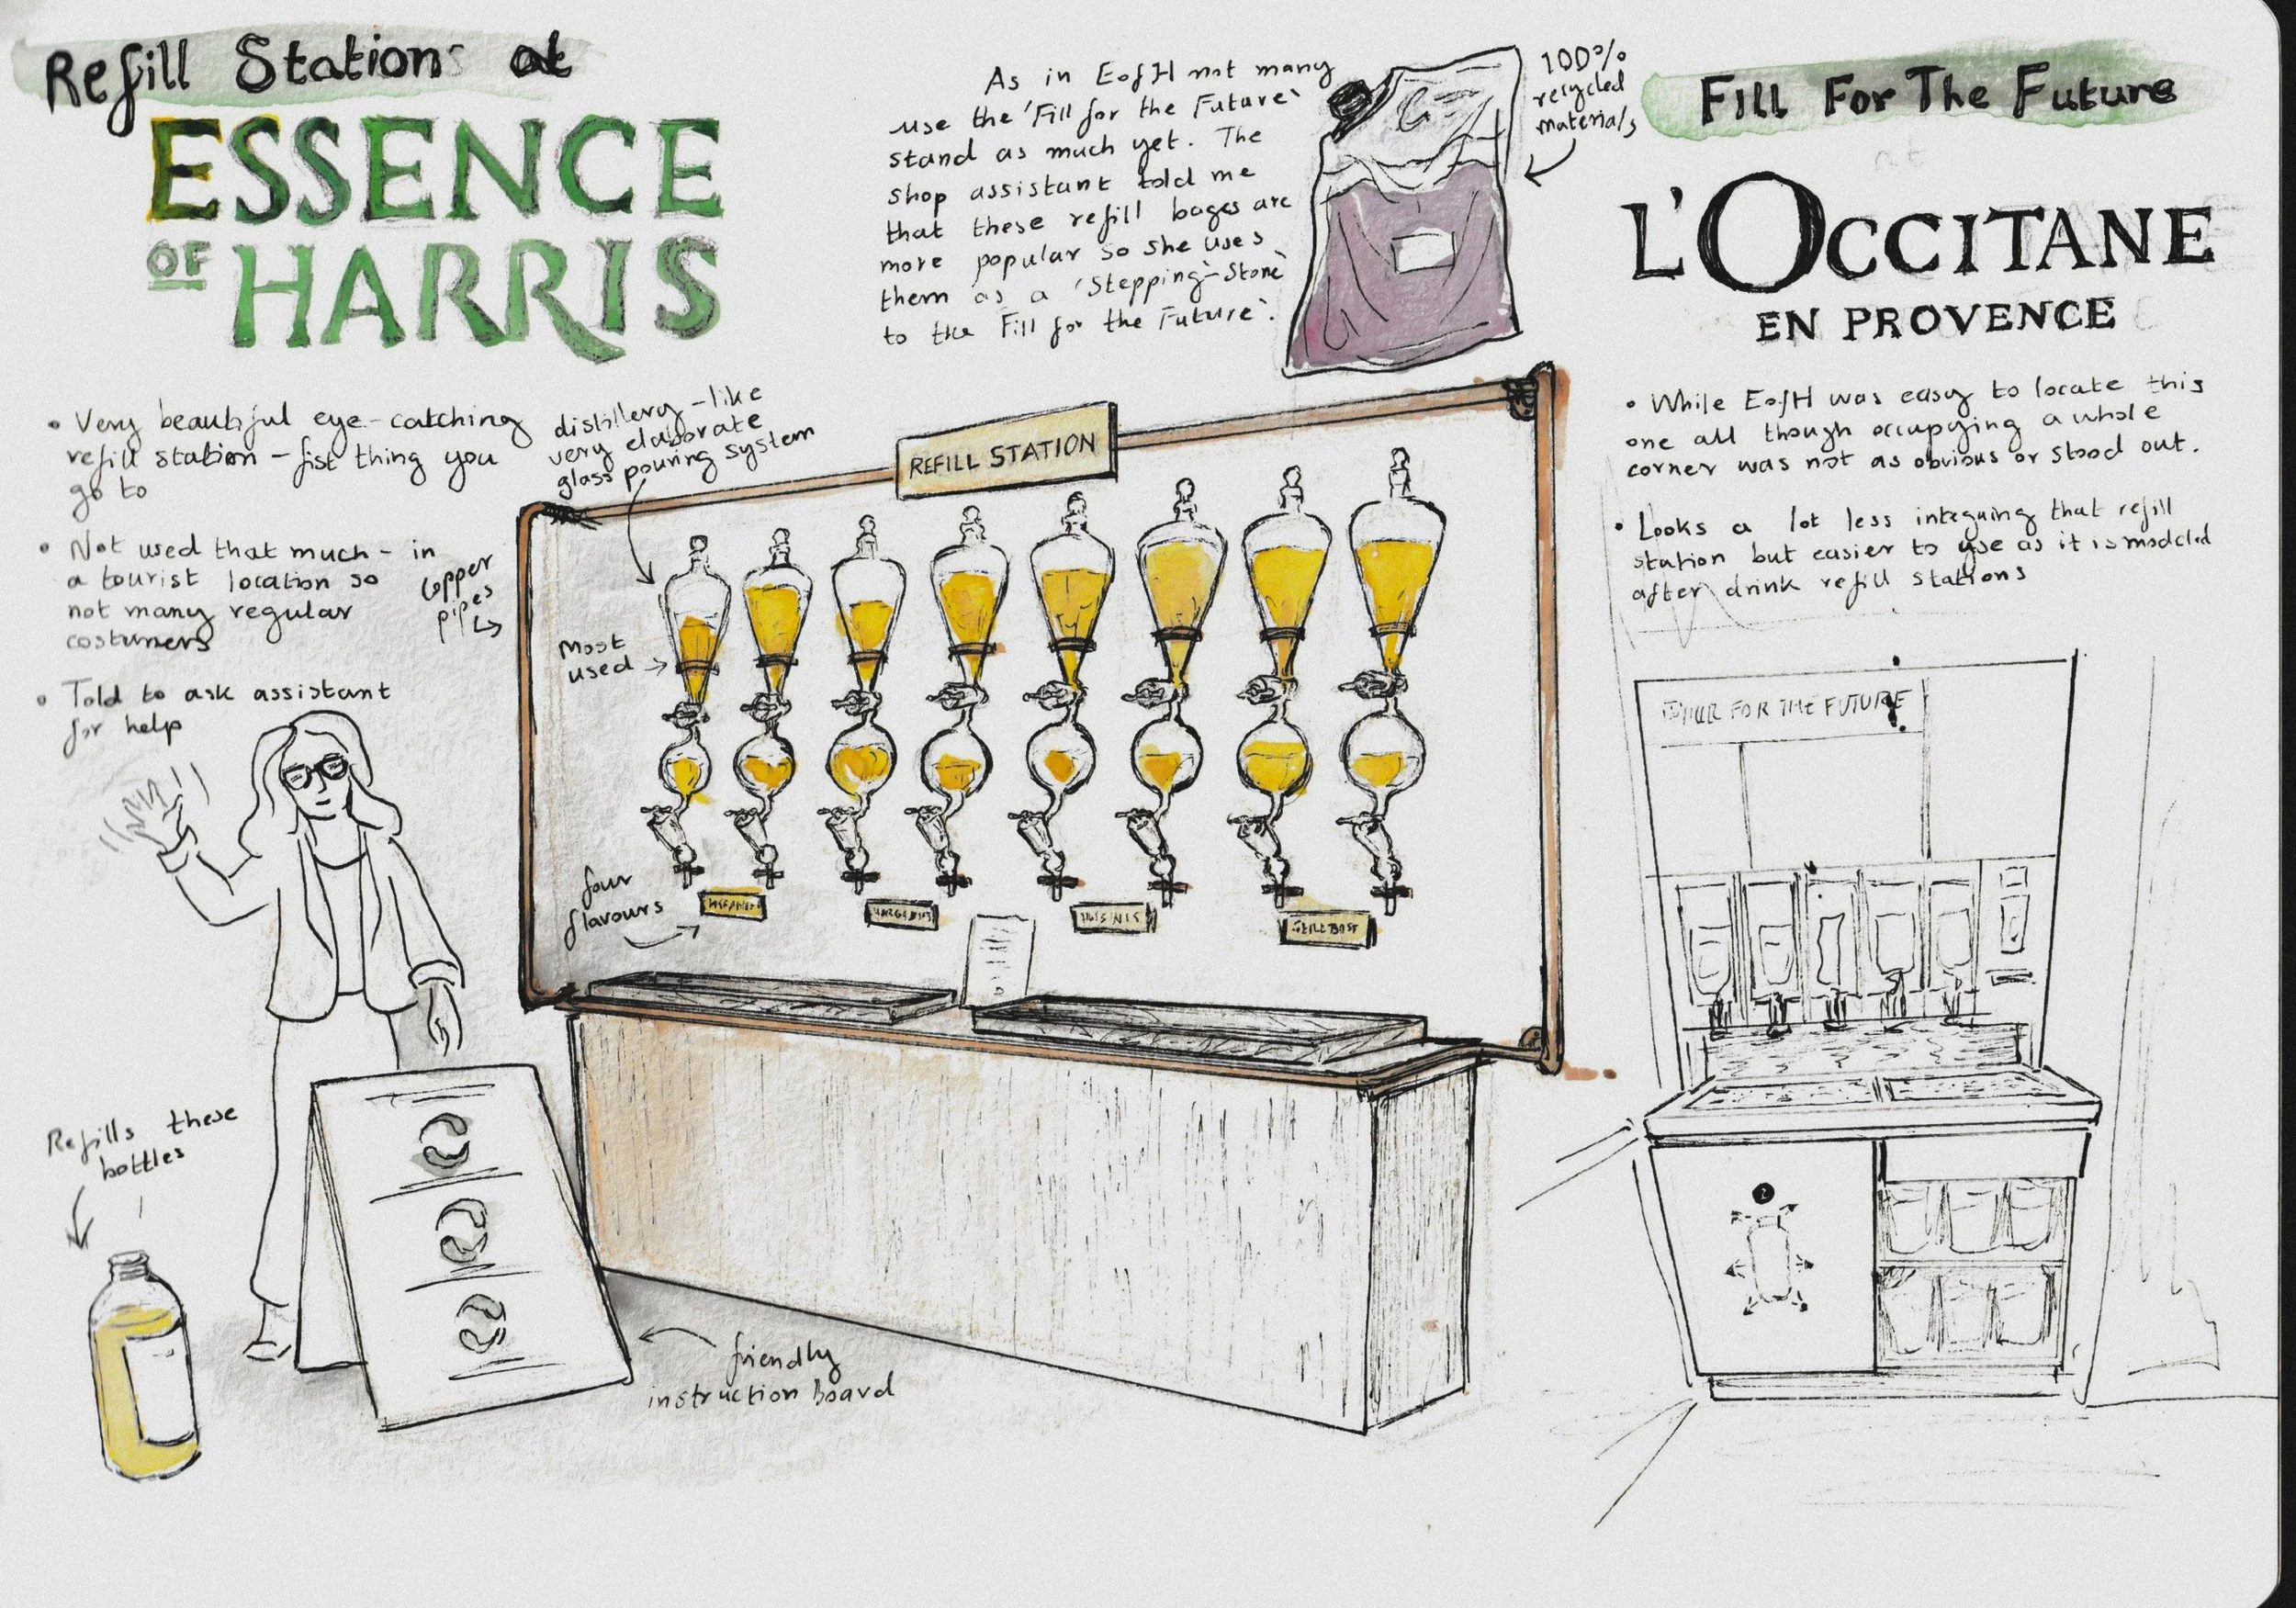 Refill Stations at
ESSENCE
OF HARRIS
• Very beautiful eye-catching
refill station - fist thing you
go to
• Not used that much - in
a tourist location so
not many regular
costumers
• Told to ask assistant
for help
distillery-like
very elaborate
glass pouring system
Copper
pipes
Most
used
four
flavours
REFILL STATION
Refills these
bottles
friendly
instruction board
As in EofH not many
use the 'Fill for the Future'
stand as much yet. The
shop assistant told me
that these refill bages are
more popular so she uses
them as a 'Stepping-Stone'
to the Fill for the Future'.
100%
recycled
materials
Fill For The Future
L'OCCITANE
EN PROVENCE
• While EofH was easy to locate this
one all though occupying a whole
corner was not as obvious or stood out.
• Looks a lot less integuing that refill
station but easier to use as it is modeled
after drink refill stations
FOR THE FUTURE